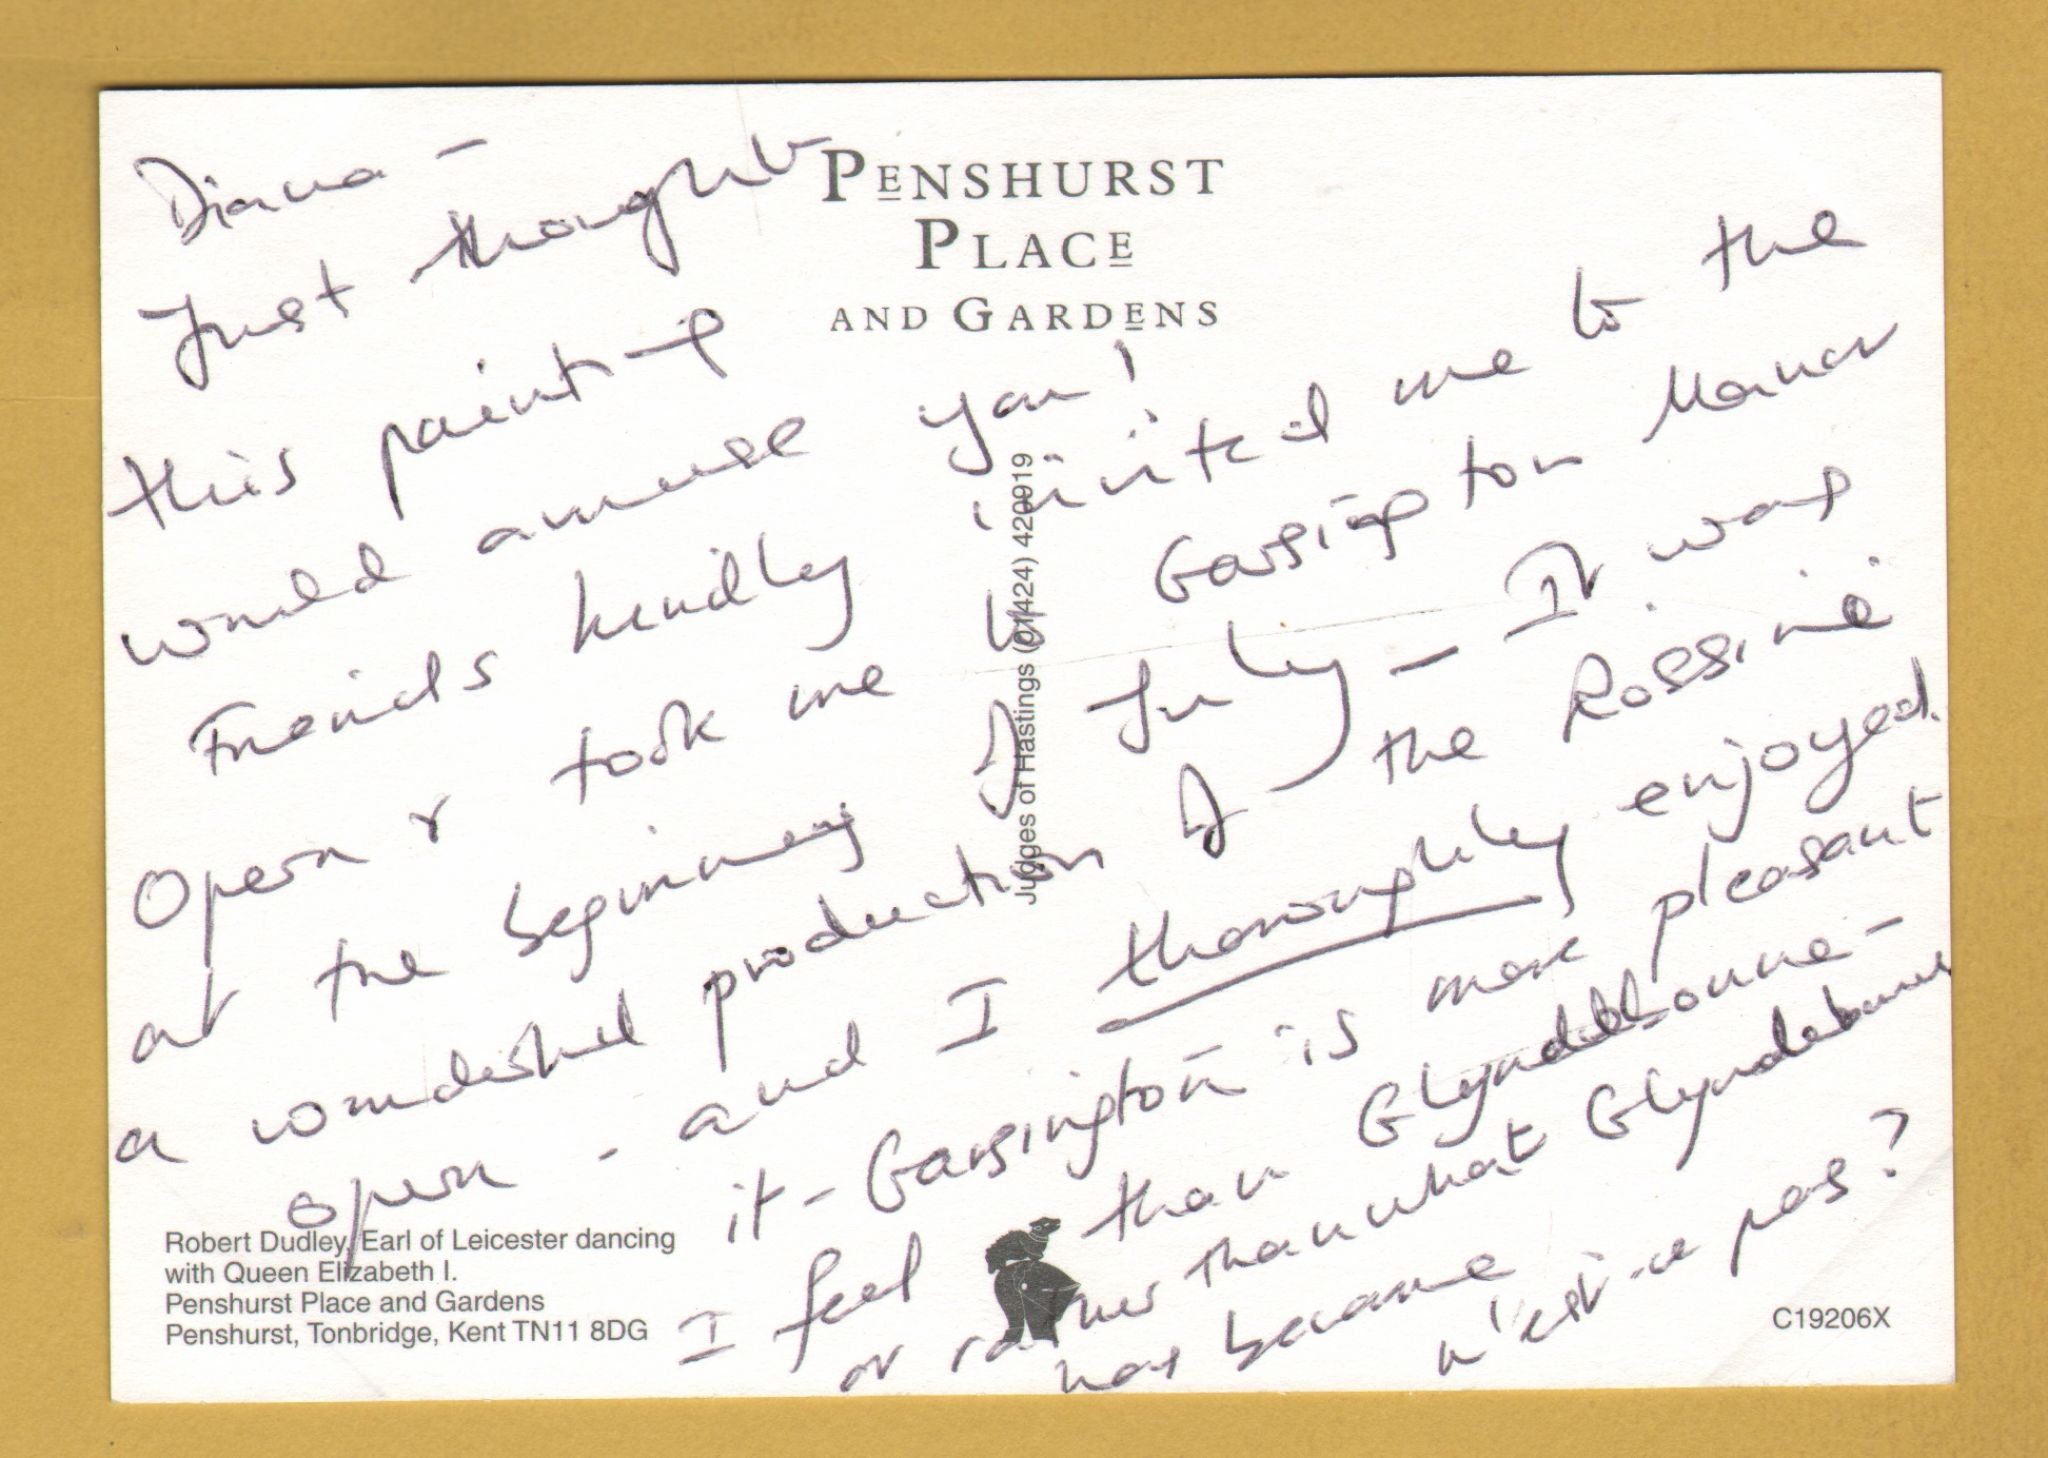 Diana –
Just thought
this painting
would amuse you!
Friends kindly invited me to the
Opera & took me to Garsington Manor
at the beginning of July – It was
a wonderful production of the Rossini
opera - and I thoroughly enjoyed
it – Garsington is more pleasant
I feel than Glyndebourne –
or rather than what Glyndebourne
has become n'est-ce pas?
PENSHURST
PLACE
AND GARDENS
Judges of Hastings (01424) 420919
Robert Dudley, Earl of Leicester dancing
with Queen Elizabeth I.
Penshurst Place and Gardens
Penshurst, Tonbridge, Kent TN11 8DG
C19206X